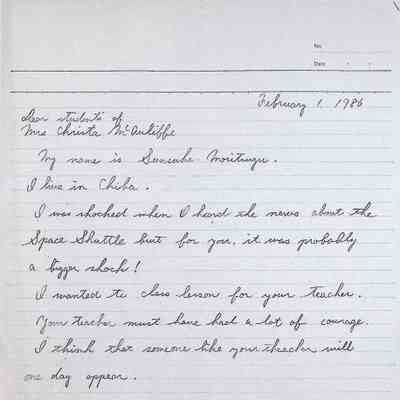 No.
Date
February 1. 1986
Dear students of
Mrs Christa McAuliffe
My name is Sunsuke
I live in Chiba.
I was shocked when I heard the news about the
Space Shuttle but for you, it was probably
a bigger shock!
I wanted to class lesson for your teacher.
Your teacher must have had a lot of courage.
I think that someone like your theacher will
one day appear.